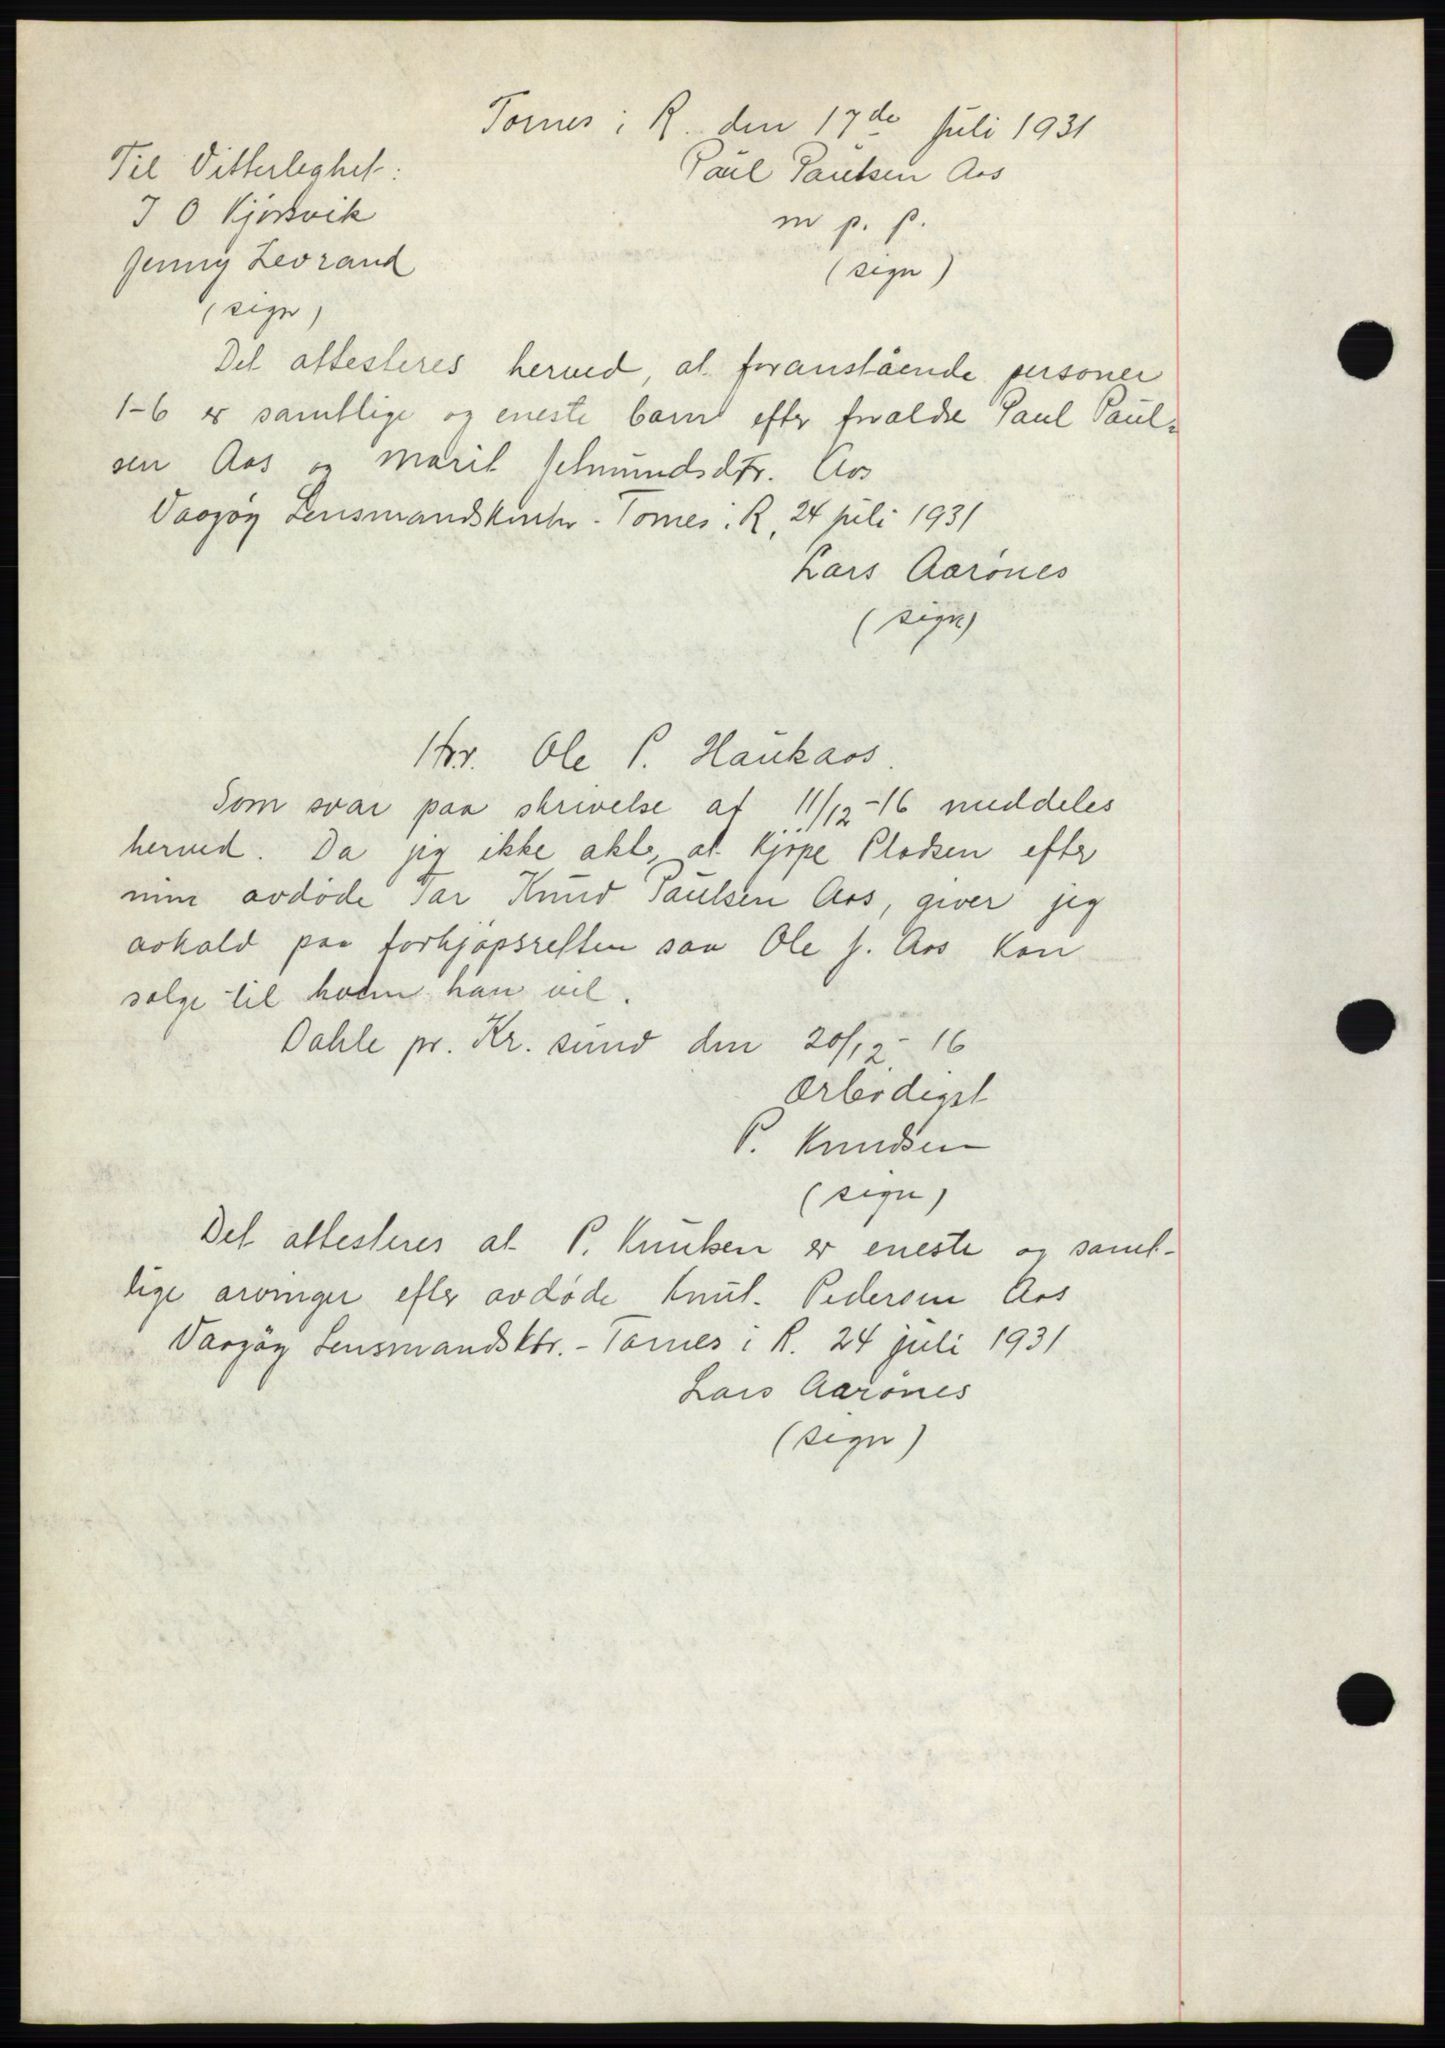 Tornes i R. den 17de Juli 1931
Til Vitterleghet: Paul Paulsen Aos
J O Kjörsvik m p. p.
Jenny Levrand (sign)
(sign)
Det attesteres herved, at foranstående personer
1-6 er samtlige og eneste barn efter foraldre Paul Paul=
sen Aos og Marit Jetmundsdtr. Aos
Vaagøy Lensmandskontor - Tornes i R, 24 juli 1931
Lars Aarönes
(sign)
Hr. Ole P. Haukaas.
Som svar paa skrivelse af 11/12-16 meddeles
herved. Da jeg ikke akter, at kjøpe Pladsen efter
min avdøde Far Knud Paulsen Aos, giver jeg
avkald paa forkjøpsretten saa Ole J. Aos kan
salge til hvem han vil.
Dahle pr. Kr. sund den 20/12-16
Ærbødigst
P. Knudsen
(sign)
Det attesteres at P. Knutsen er eneste og samt-
lige arvinger efter avdøde Knut Pedersen Aos
Vaagøy Lensmandsktr. - Tornes i R. 24 juli 1931
Lars Aarönes
(sign)